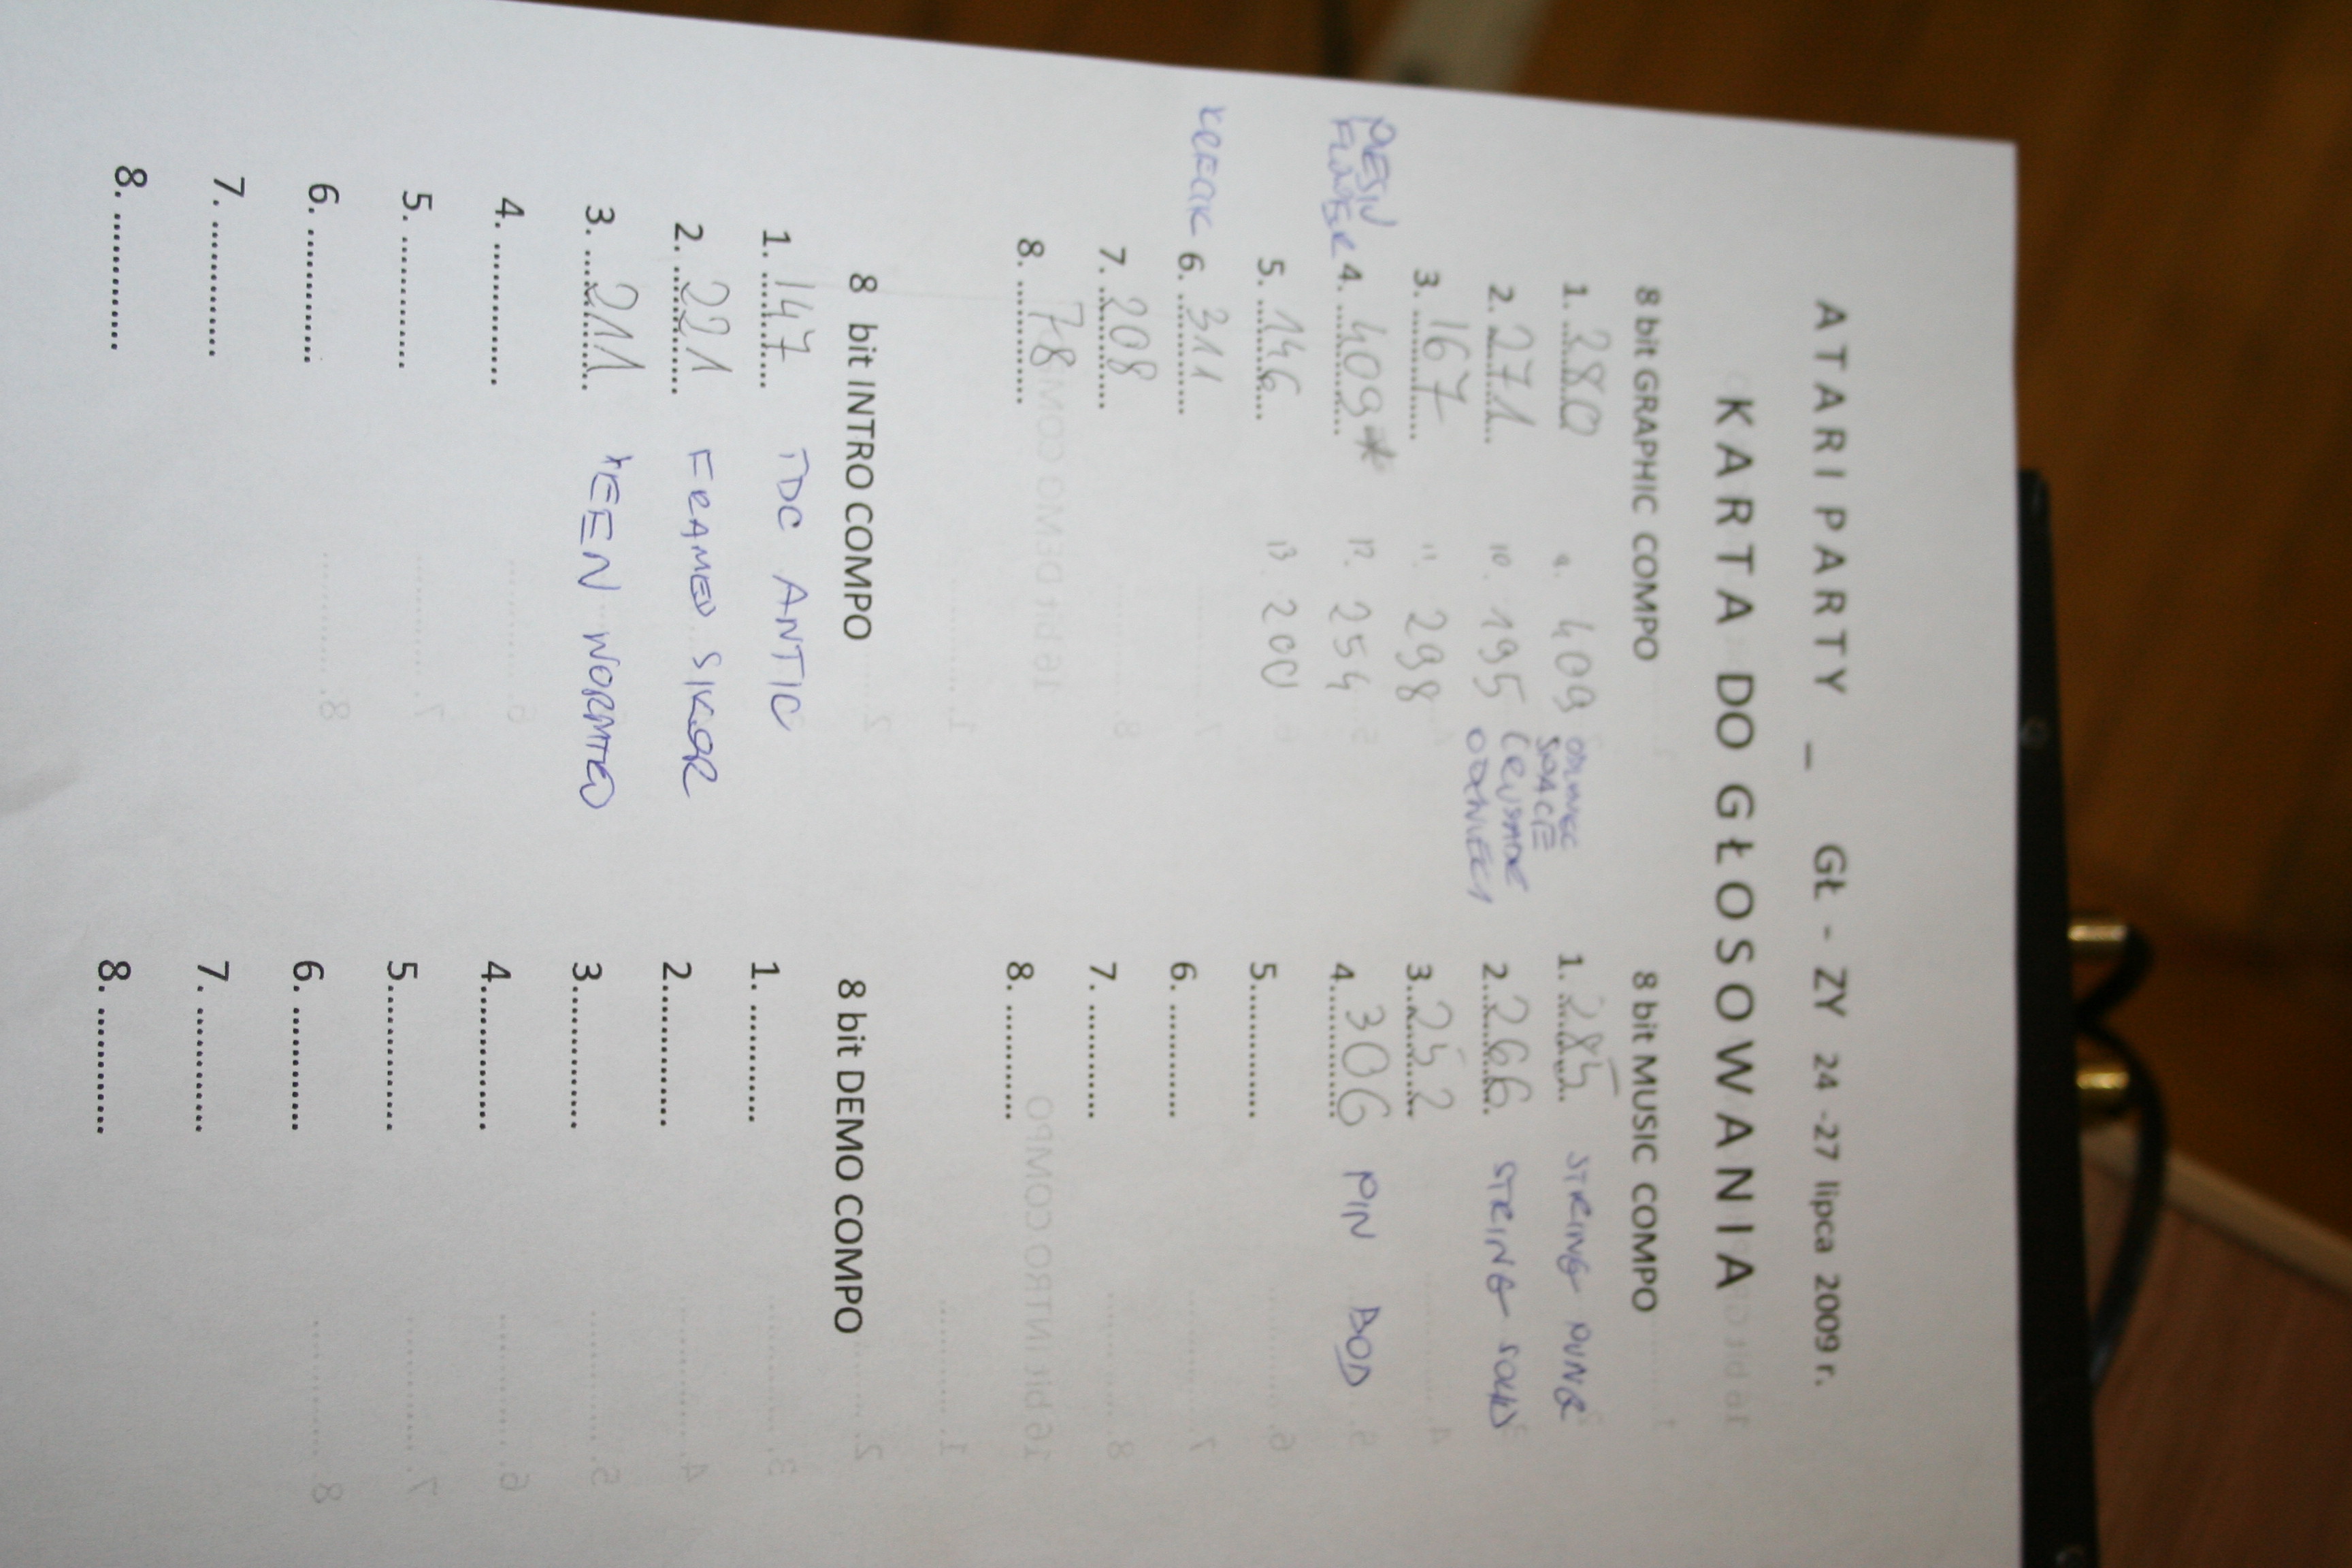 ATARI PARTY _ GŁ - ZY 24 -27 lipca 2009 r.
KARTA DO GŁOSOWANIA
8 bit GRAPHIC COMPO
1. 280
2. 271
3. 167
4. 409*
5. 146
6. 311
7. 208
8. 78
9. 409 SPACE
10. 195
11. 298
12. 254
13. 200
8 bit MUSIC COMPO
1. 285 STRING
2. 266 STRING
3. 252
4. 306 PIN BOD
5.
6.
7.
8.
8 bit INTRO COMPO
1. 147 TDC ANTIC
2. 221 FRAMED SIKOR
3. 211
4.
5.
6.
7.
8.
8 bit DEMO COMPO
1.
2.
3.
4.
5.
6.
7.
8.